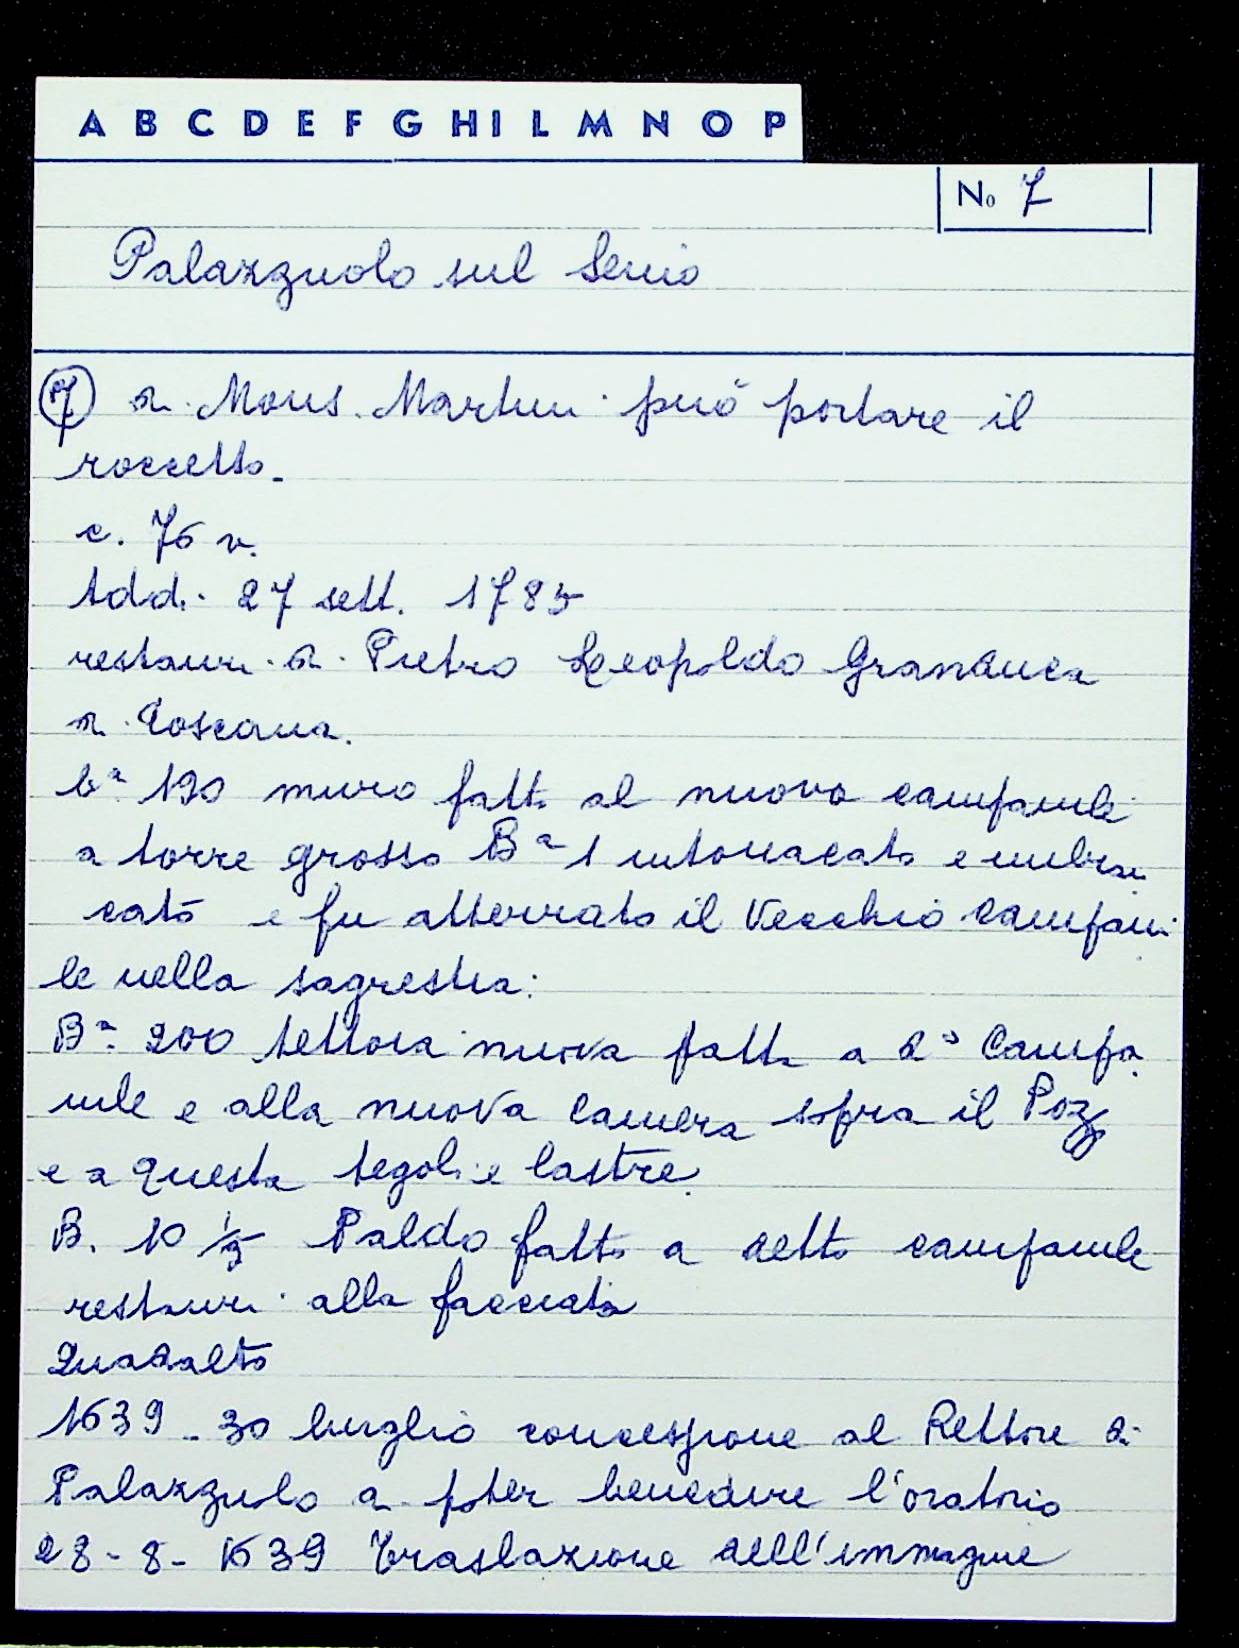 A B C D E F G H I L M N O P
No 7
Palazzuolo sul Senio
7 di Mons. Martini può portare il
roccetto.
c. 76 v.
Addi 27 sett. 1785
restauri di Pietro Leopoldo Granduca
di Toscana.
b.a 190 muro fatto al nuovo campanile
a torre grosso B.a 1 intonacato e imbian
cato e fu atterrato il Vecchio campani
le nella sagrestia:
B.a 200 tettoia nuova fatta a do Campa
nile e alla nuova camera sopra il Pozzo
e a questa tegoli e lastre.
B. 10 1/2 fatto a detto campanile
restauri alla facciata
Quadalto
1639 - 30 luglio concessione al Rettore di
Palazzuolo a poter benedire l'oratorio
28 - 8 - 1639 Traslazione dell'immagine